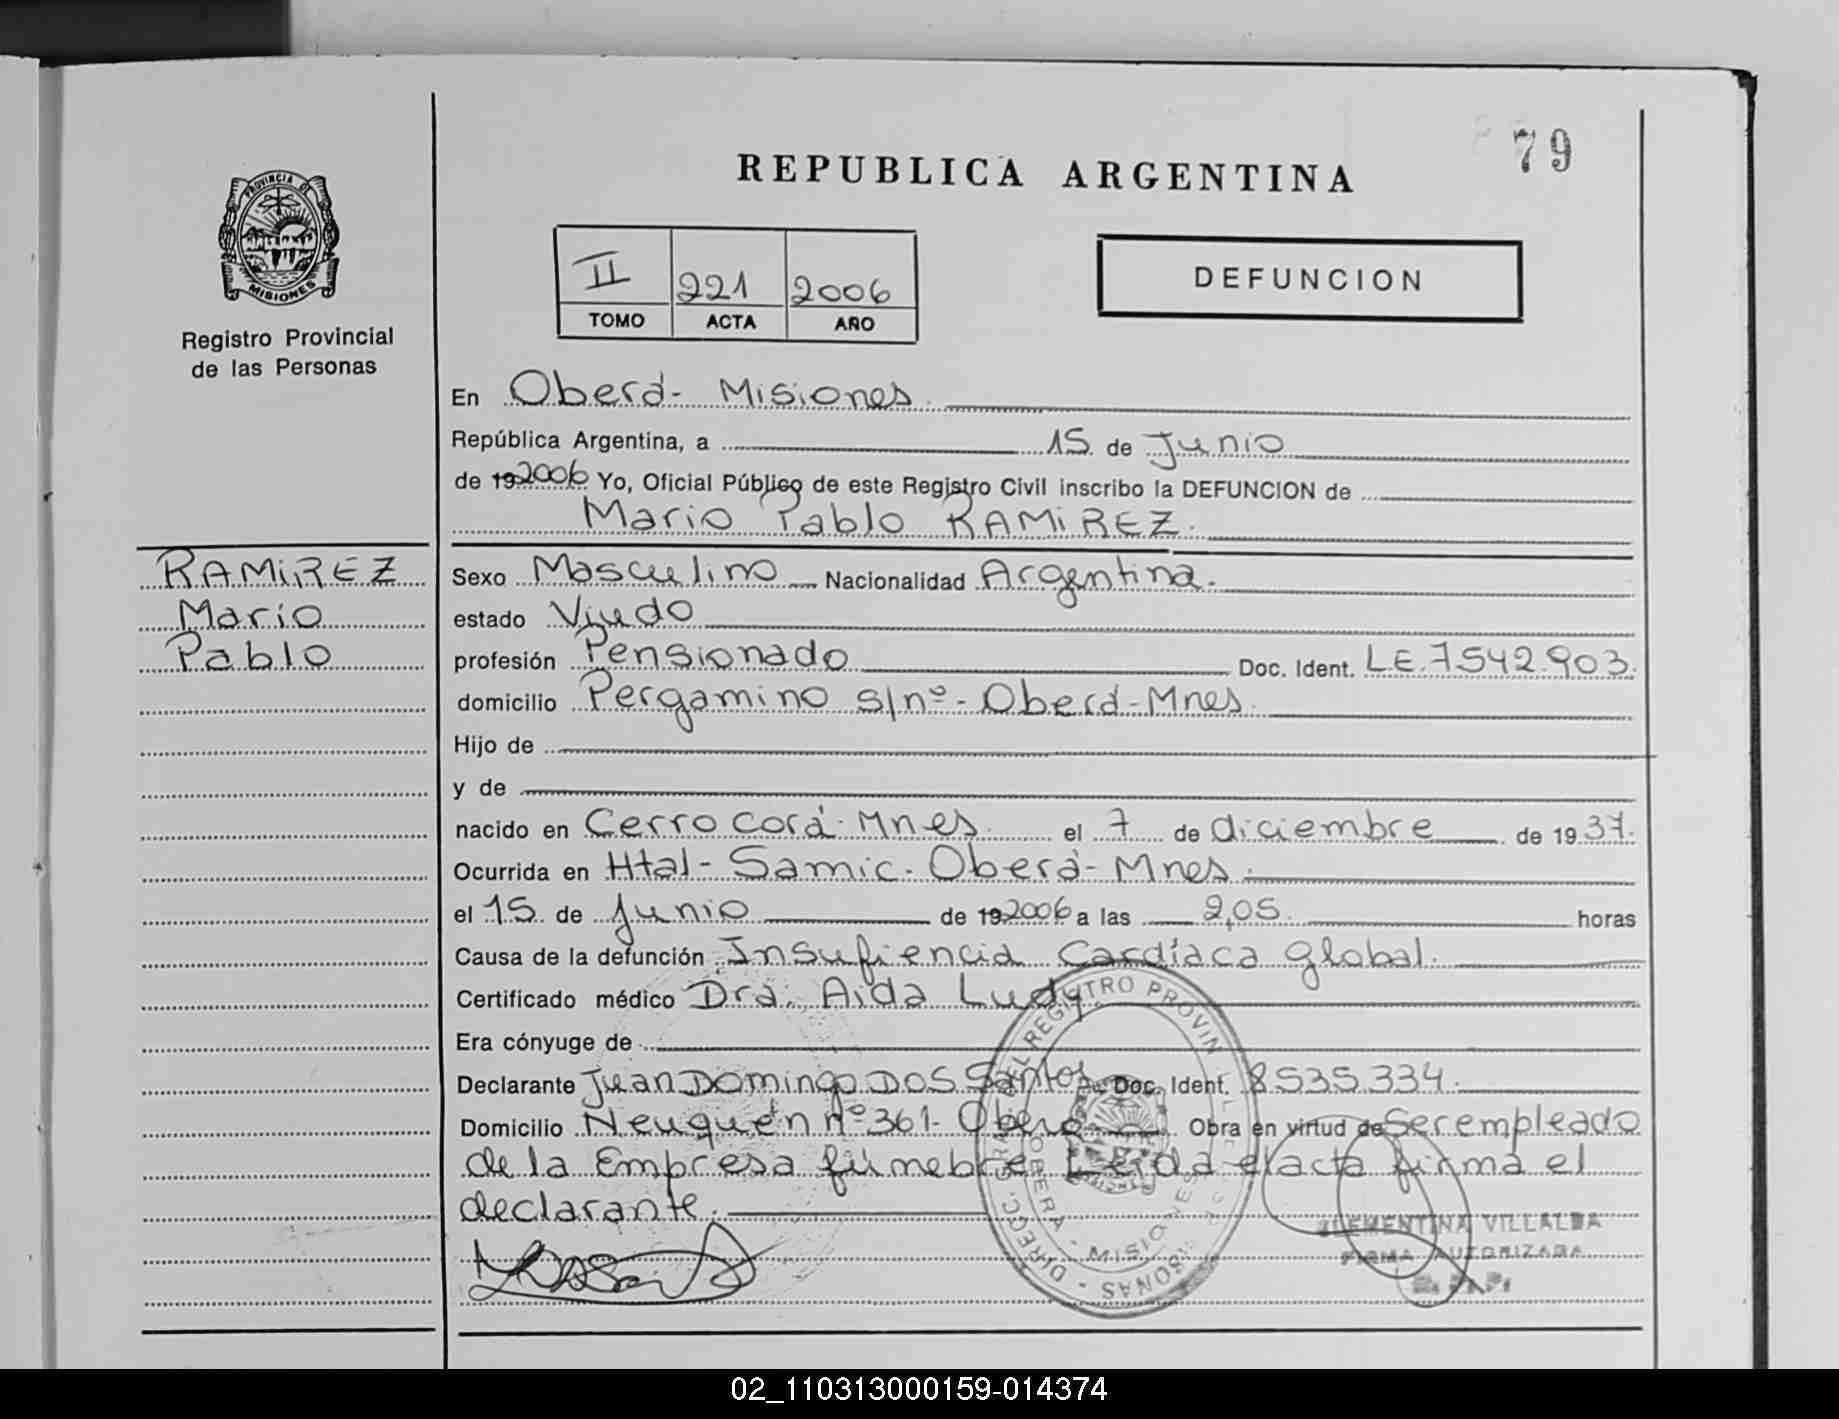 79
REPUBLICA ARGENTINA
PROVINCIA DE
MISIONES
Registro Provincial
de las Personas
II 221 2006
TOMO ACTA AÑO
DEFUNCION
En Oberá- Misiones.
República Argentina, a 15 de Junio
de 192006 Yo, Oficial Público de este Registro Civil inscribo la DEFUNCION de
Mario Pablo RAMiREZ.
RAMiREZ
Mario
Pablo
Sexo Masculino Nacionalidad Argentina.
estado Viudo
profesión Pensionado Doc. Ident. L.E.7.542.903.
domicilio Pergamino s/nº- Oberá-Mnes.
Hijo de
y de
nacido en Cerro Corá. Mnes. el 7 de diciembre de 1937.
Ocurrida en Htal- Samic. Oberá- Mnes.
el 15 de Junio de 192006 a las 2,05. horas
Causa de la defunción Insufiencia Cardíaca global.
Certificado médico Dra. Aida Ludy
Era cónyuge de
Declarante Juan Domingo DOS Santos Doc. Ident. 8.535.334.
Domicilio Neuquén nº 361- Oberá Obra en virtud de Ser empleado
de la Empresa fúnebre Leida el acta firma el
declarante.
DIRECC. GRAL. DEL REGISTRO PROVIN
OBERA - MISIONES
CLEMENTINA VILLALBA
FIRMA AUTORIZADA
02_110313000159-014374